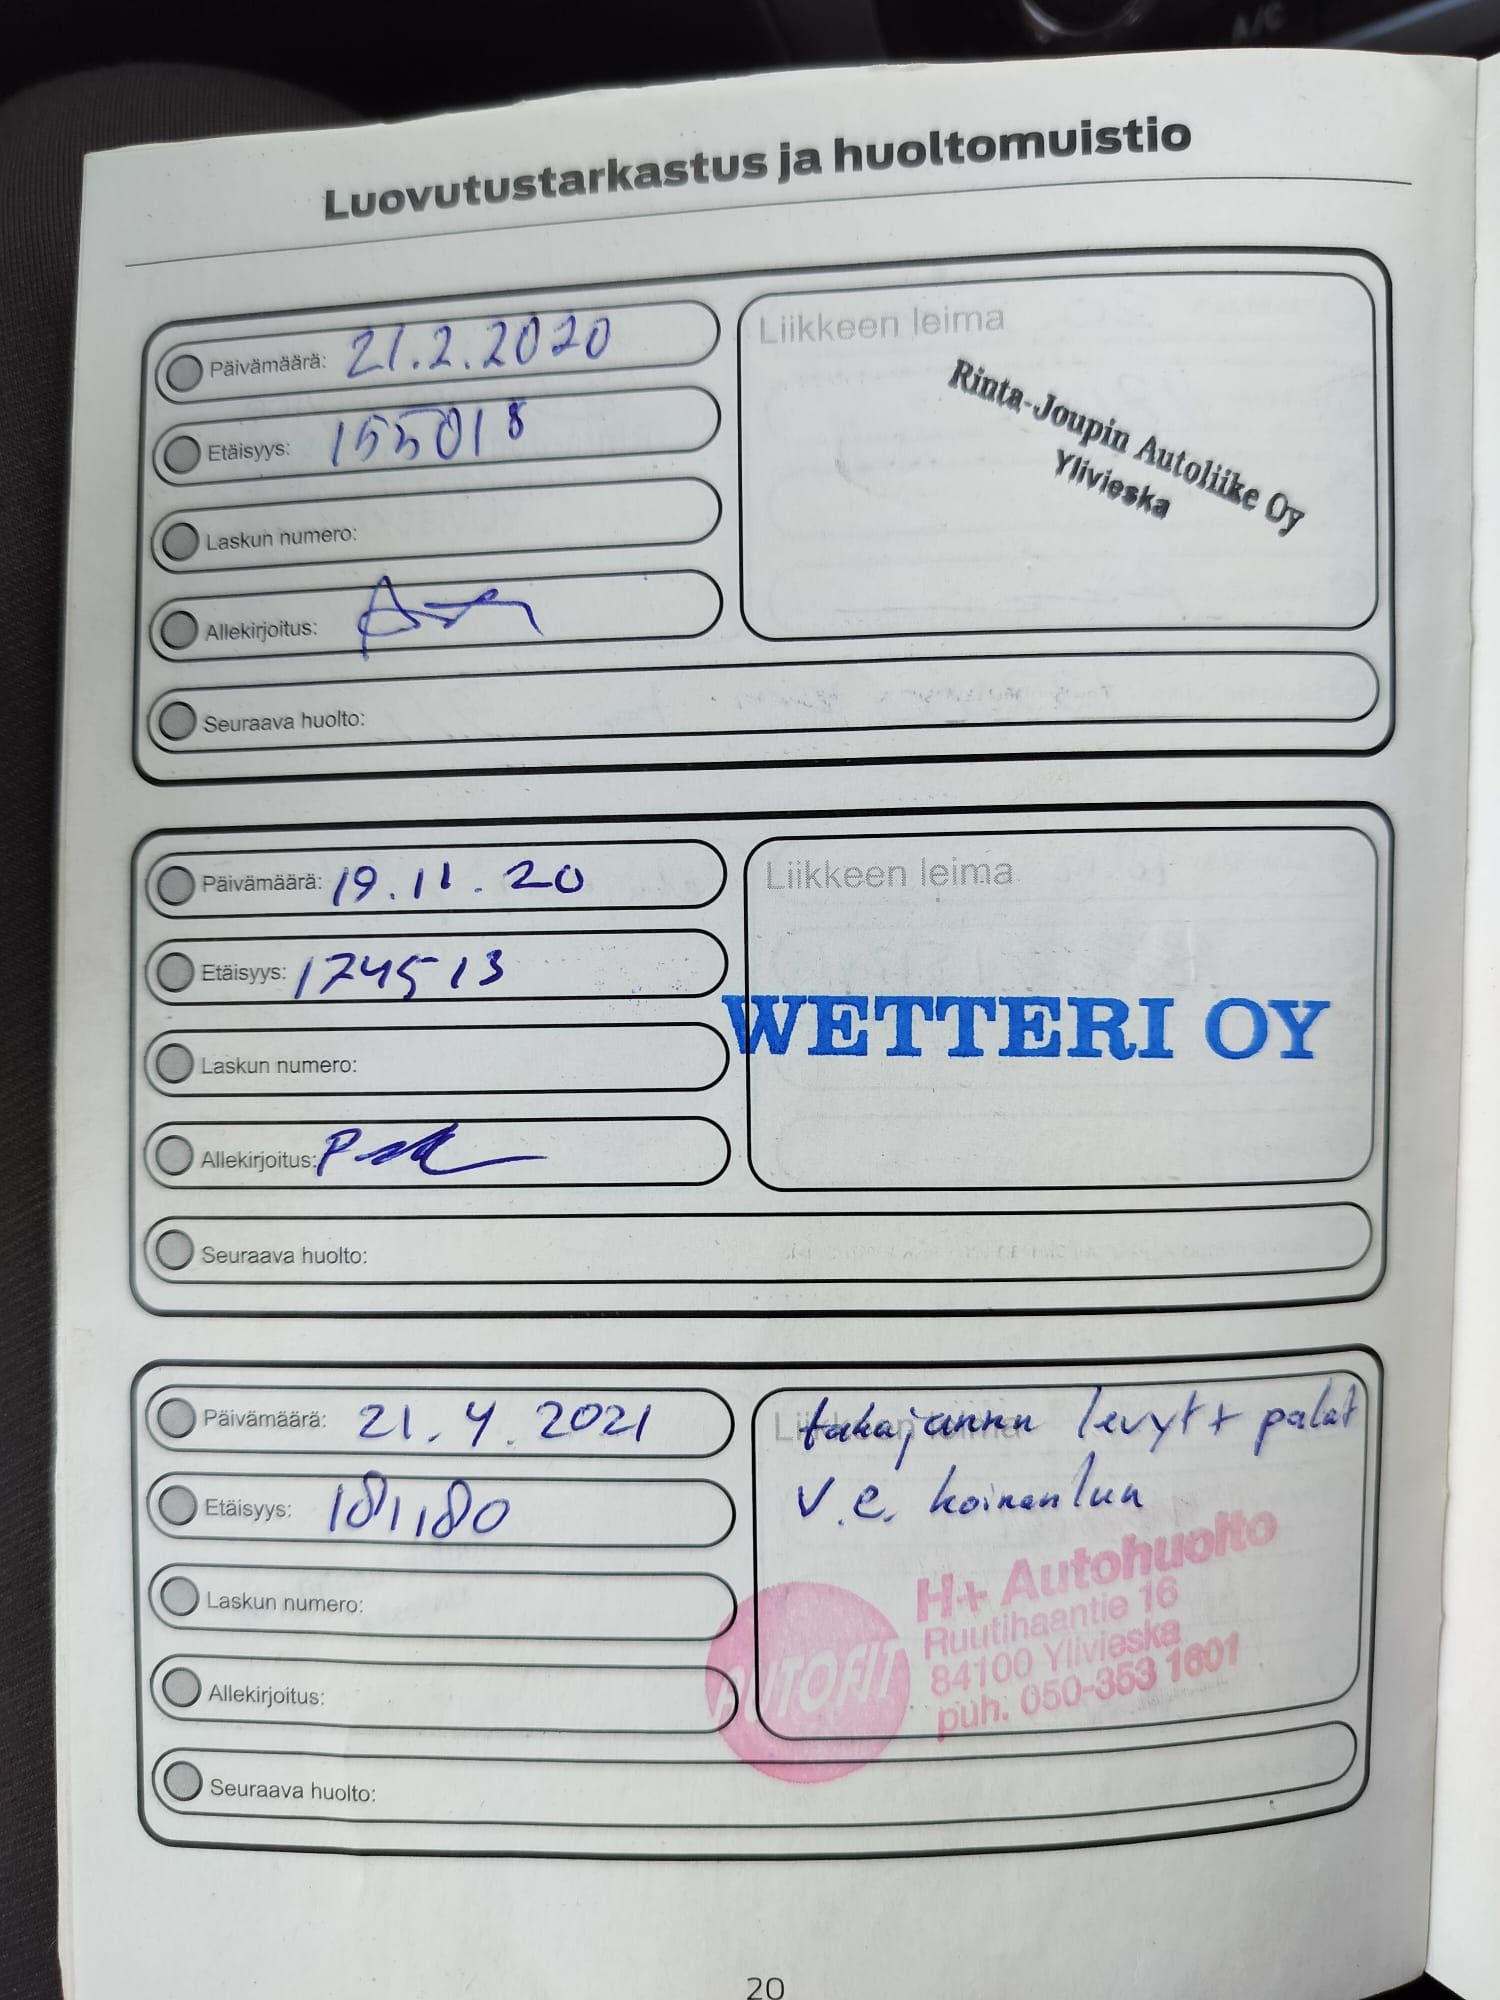 A/C
Luovutustarkastus ja huoltomuistio
Päivämäärä: 21.2.2020
Etäisyys: 155018
Laskun numero:
Allekirjoitus:
Seuraava huolto:
Liikkeen leima
Rinta-Joupin Autoliike Oy
Ylivieska
Päivämäärä: 19.11.20
Etäisyys: 174513
Laskun numero:
Allekirjoitus:
Seuraava huolto:
Liikkeen leima
WETTERI OY
Päivämäärä: 21.4.2021
Etäisyys: 181,80
Laskun numero:
Allekirjoitus:
Seuraava huolto:
Liikkeen leima
takajarrun levyt + palat
v.e. koiranluu
AUTOFIT
H+ Autohuolto
Ruutihaantie 16
84100 Ylivieska
puh. 050-353 1601
20